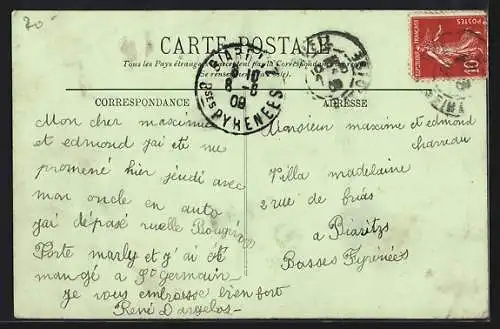 20-
CARTE POSTALE
Tous les Pays étrangers n'acceptent pas la Correspondance
Se renseigner
CORRESPONDANCE
ADRESSE
BIARRITZ
8-8
09
BSES PYRENEES
POSTES
10
Mon cher maxime
et edmond jai eté me
promené hier jeudi avec
mon oncle en auto
jai dépasé ruelle Bougival
Porte marly et j'ai été
mangé a St Germain
je vous embrasse bien fort
René Dargelos-
Monsieur maxime et edmond
Villa madelaine
2 rue de frias
a Biaritzs
Basses Pyrénées